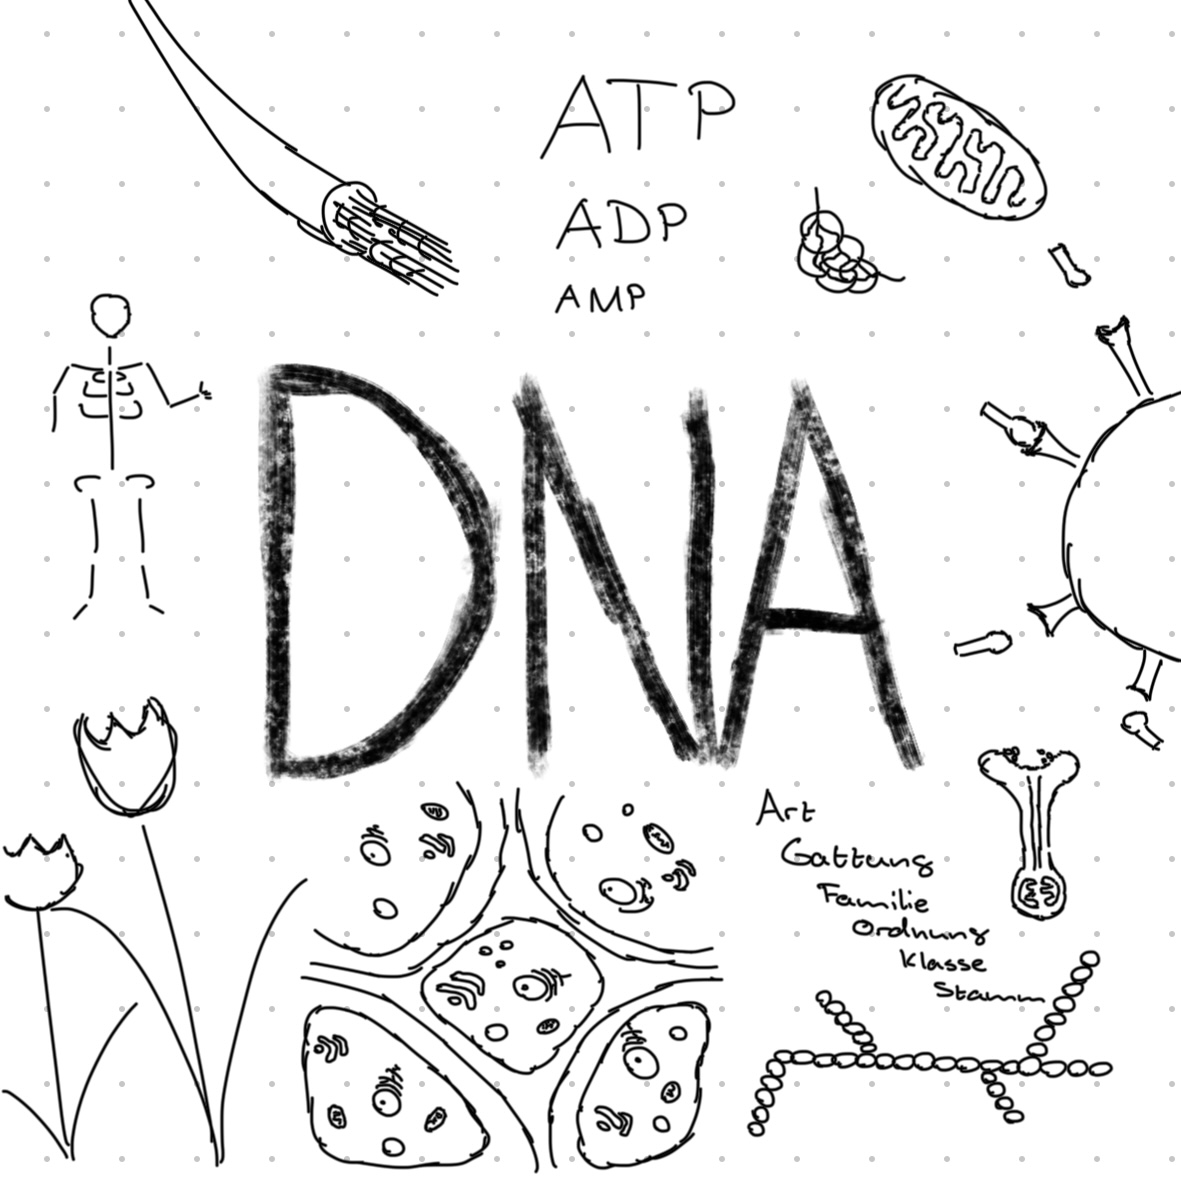 ATP
ADP
AMP
DNA
Art
Gattung
Familie
Ordnung
Klasse
Stamm